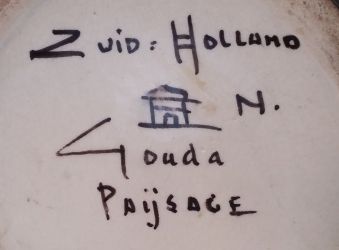 ZUID: HOLLAND
N.
Gouda
PAIJSAGE